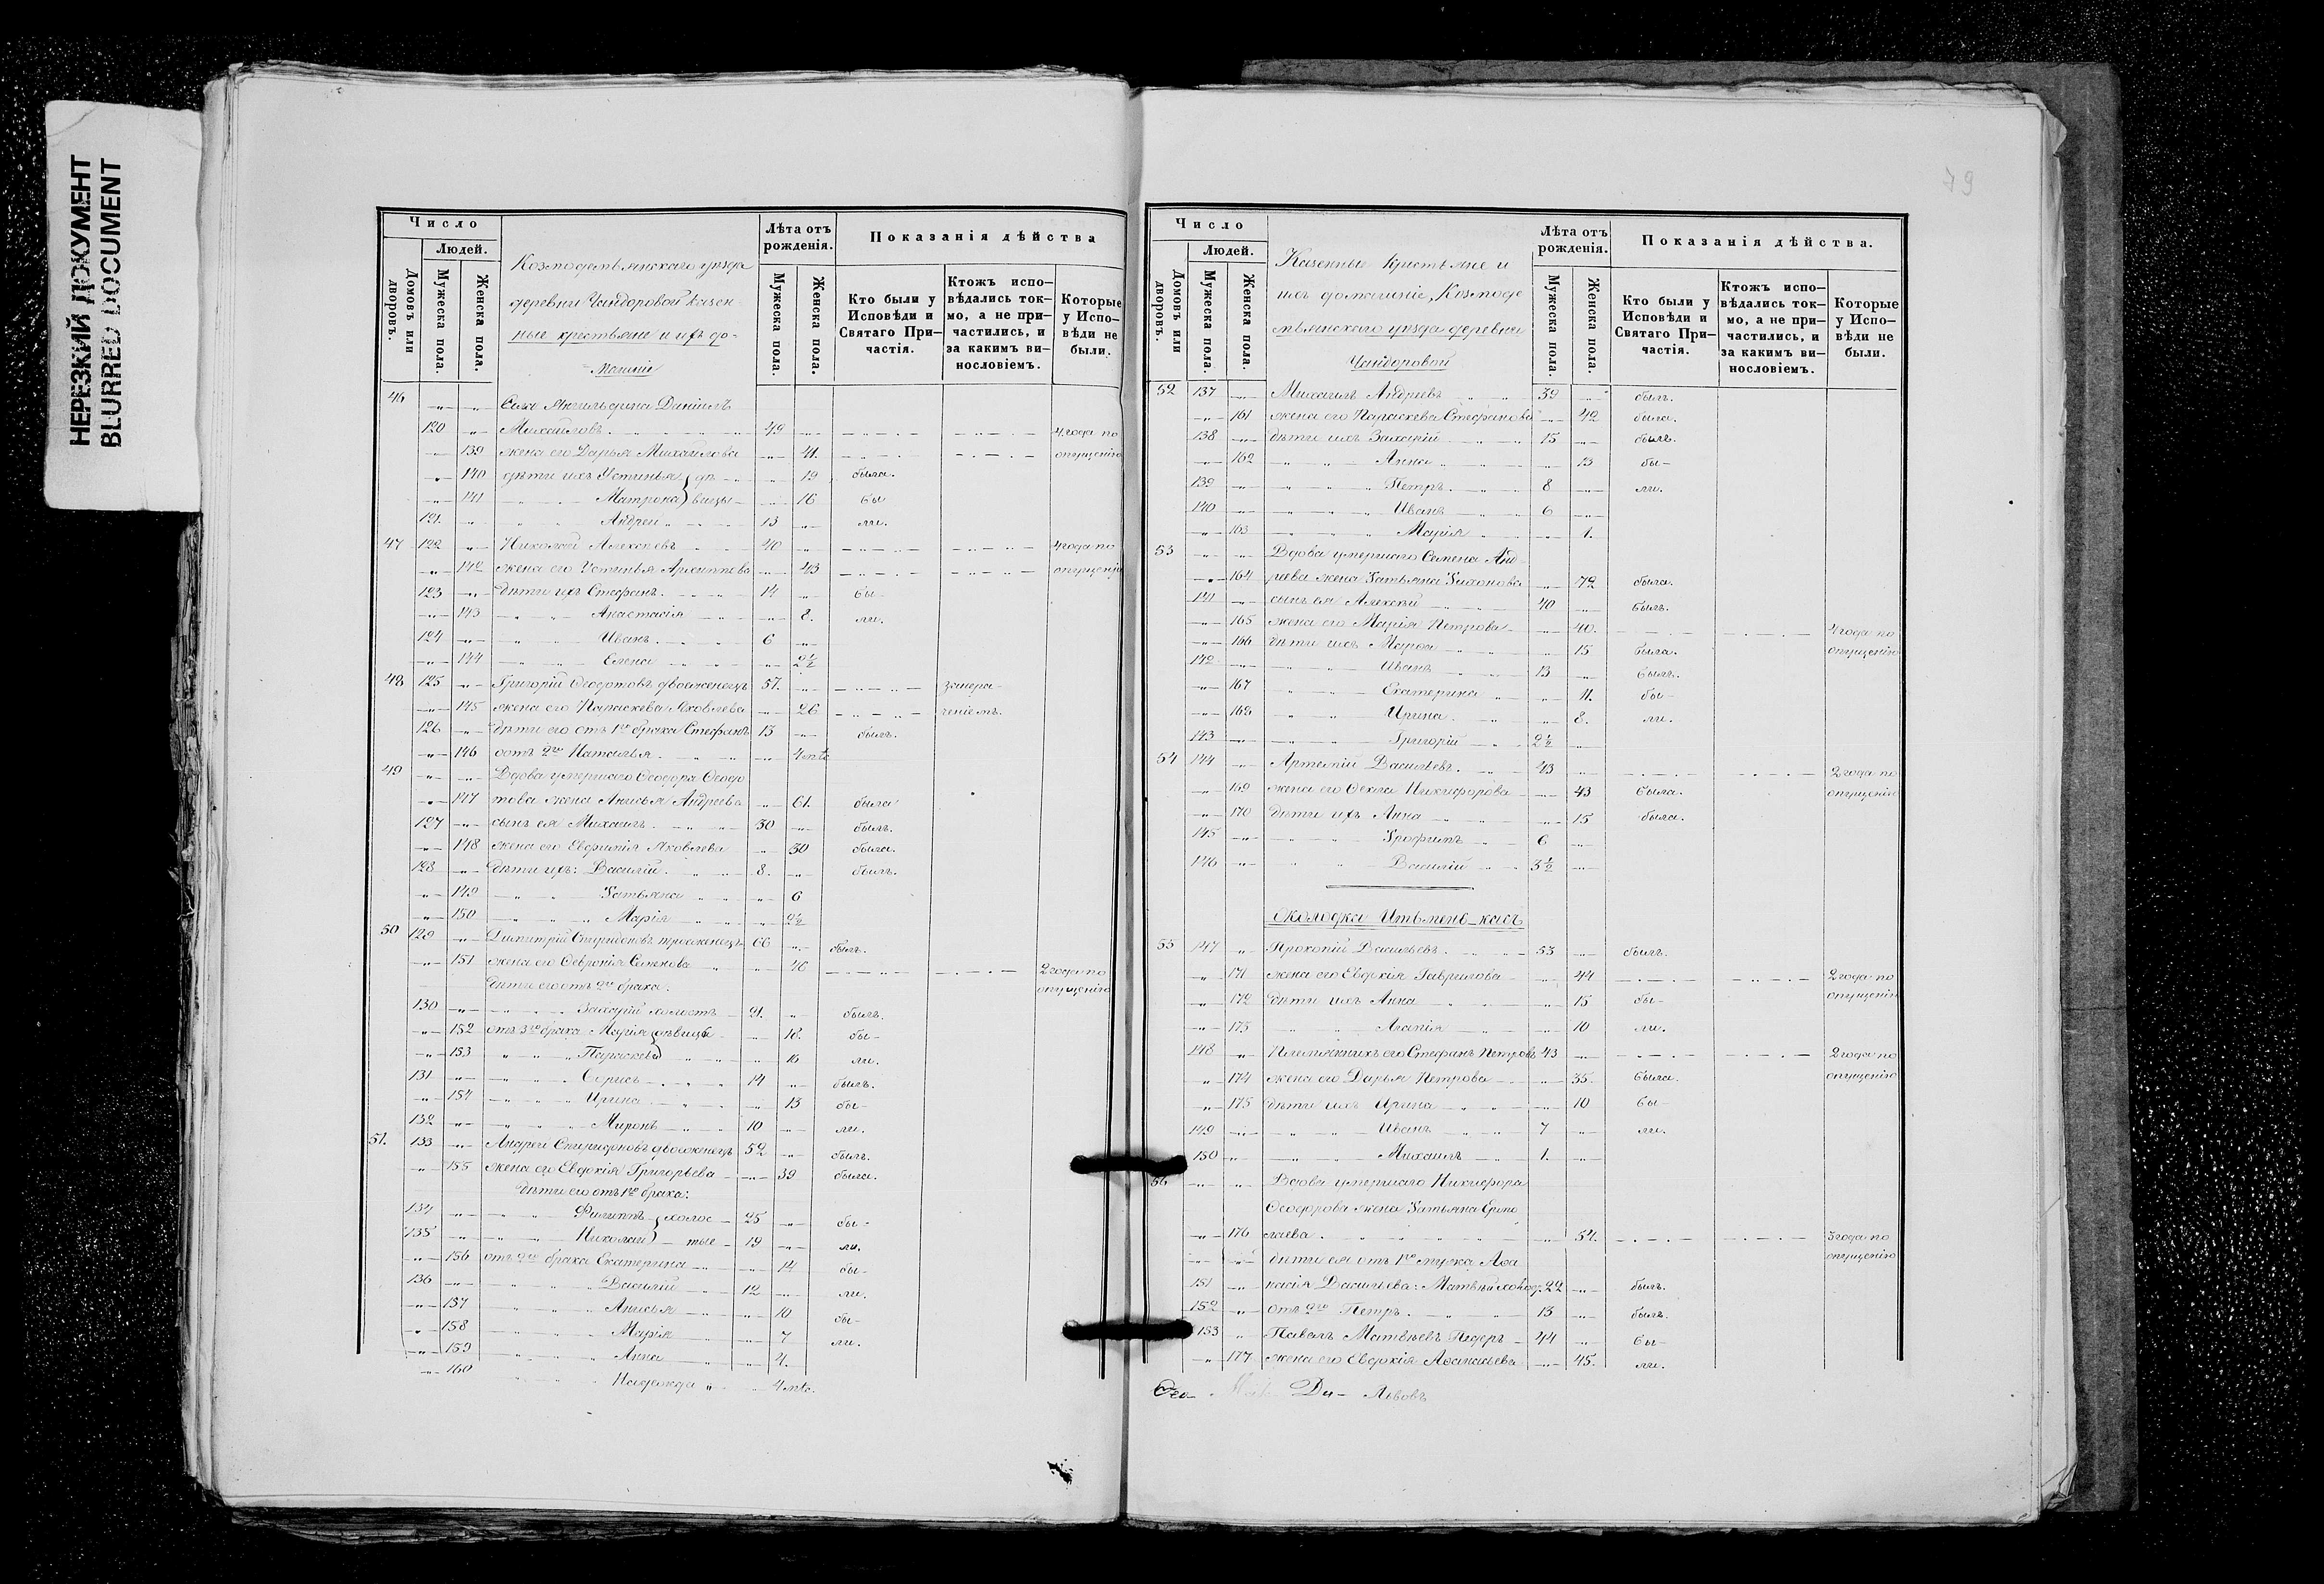 НЕРЕЗКИЙ ДОКУМЕНТ
BLURRED DOCUMENT
Число
Людей.
Домовъ или дворовъ.
Мужеска пола.
Женска пола.
Козмодемьянскаго уѣзда
деревни Чандоровой казен-
ные крестьяне и ихъ до-
машніе
Лѣта отъ рожденія.
Мужеска пола.
Женска пола.
Показанія дѣйства
Кто были у Исповѣди и Святаго Причастія.
Ктожъ исповѣдались токмо, а не причастились, и за какимъ винословіемъ.
Которые у Исповѣди не были.
46 Даніилъ
120 Михайловъ 49 4 года по
139 жена его Дарья Михайлова 41. опущенію
140 дѣти ихъ Устинья } дѣ- 19 была.
141 Матрона } вицы 16 бы
121. Андрей 13 ли.
47 122 Николай Алексѣевъ 40 4 года по
142 жена его Устинья Архиппова 43 опущенію
123 дѣти ихъ Стефанъ 14 бы-
143 Анастасія 8. ли.
124 Иванъ 6
144 Елена 2½
48 125 Григорій Ѳеодотовъ двоеженецъ 57.
145 жена его Параскева Яковлева 26
126 дѣти его отъ 1го брака Стефанъ 13 былъ.
146 отъ 2го Наталья 4 мѣс
49 Вдова умершаго Ѳеодора Ѳеодо
147 това жена Анисья Андреева 61. была
127 сынъ ея Михаилъ 30 былъ.
148 жена его Евфимія Яковлева 30 была.
128 дѣти ихъ: Василій 8. былъ.
149 Татьяна 6
150 Марія 2½
50 129 Димитрій Спиридоновъ троеженецъ 66 былъ.
151 жена его Ѳевронія Семенова 46 2 года по
дѣти его отъ 2го брака: опущенію
130 Захарій холостъ 21. былъ.
152 отъ 3го брака Марія } дѣвицы 18. бы-
153 Параскева } 16 ли.
131 Борисъ 14 былъ.
154 Ирина 13 бы-
132 Миронъ 10 ли.
51. 133 Андрей Спиридоновъ двоеженецъ 52 былъ.
155 жена его Евдокія Григорьева 39 была.
дѣти его отъ 1го брака:
134 Филиппъ } холос- 25 бы-
135 Николай } тые 19 ли.
156 отъ 2го брака Екатерина 14 бы-
136 Василій 12 ли.
157 Анисья 10 бы-
158 Марія 7 ли.
159 Анна 4.
160 Надежда 4 мѣс.
79
Число
Людей.
Домовъ или дворовъ.
Мужеска пола.
Женска пола.
Казенные крестьяне и
ихъ домашніе, Козмоде
мьянскаго уѣзда деревни
Чандоровой
Лѣта отъ рожденія.
Мужеска пола.
Женска пола.
Показанія дѣйства.
Кто были у Исповѣди и Святаго Причастія.
Ктожъ исповѣдались токмо, а не причастились, и за какимъ винословіемъ.
Которые у Исповѣди не были.
52 137 Михаилъ Андреевъ 39 былъ.
161 жена его Параскева Стефанова 42 была.
138 дѣти ихъ Захарій 15 былъ.
162 Анна 13 бы-
139 Петръ 8 ли.
140 Иванъ 6
163 Марія 1.
53 Вдова умершаго Семена Анд
164 реева жена Татьяна Тихонова 72 была.
141 сынъ ея Алексѣй 40 былъ.
165 жена его Марія Петрова 40. 4 года по
166 дѣти ихъ Марѳа 15 была. опущенію
142 Иванъ 13 былъ.
167 Екатерина 11. бы-
168 Ирина 8. ли.
143 Григорій 2½
54 144 Артемій Васильевъ 43 2 года по
169 жена его Ѳекла Никифорова 43 была. опущенію
170 дѣти ихъ Анна 15 была.
145 Трофимъ 6
146 Василій 3½
околодка
55 147 Прокопій Васильевъ 53 былъ.
171 жена его Евдокія Гаврилова 44 2 года по
172 дѣти ихъ Анна 15 бы- опущенію
173 Агапія 10 ли.
148 Племянникъ его Стефанъ Петровъ 43 2 года по
174 жена его Дарья Петрова 35 была. опущенію
175 дѣти ихъ Ирина 10 бы-
149 Иванъ 7 ли.
150 Михаилъ 1.
56 Вдова умершаго Никифора
Ѳеодорова жена Татьяна Ермо
176 лаева 54. 3 года по
дѣти ея отъ 1го мужа Аѳа опущенію
151 насія Васильева: Матвѣй 22 былъ.
152 отъ 2го Петръ 13 былъ.
153 Павелъ Матвѣевъ 44 бы-
177 жена его Евдокія Аѳанасьева 45. ли.
Ди- Львовъ